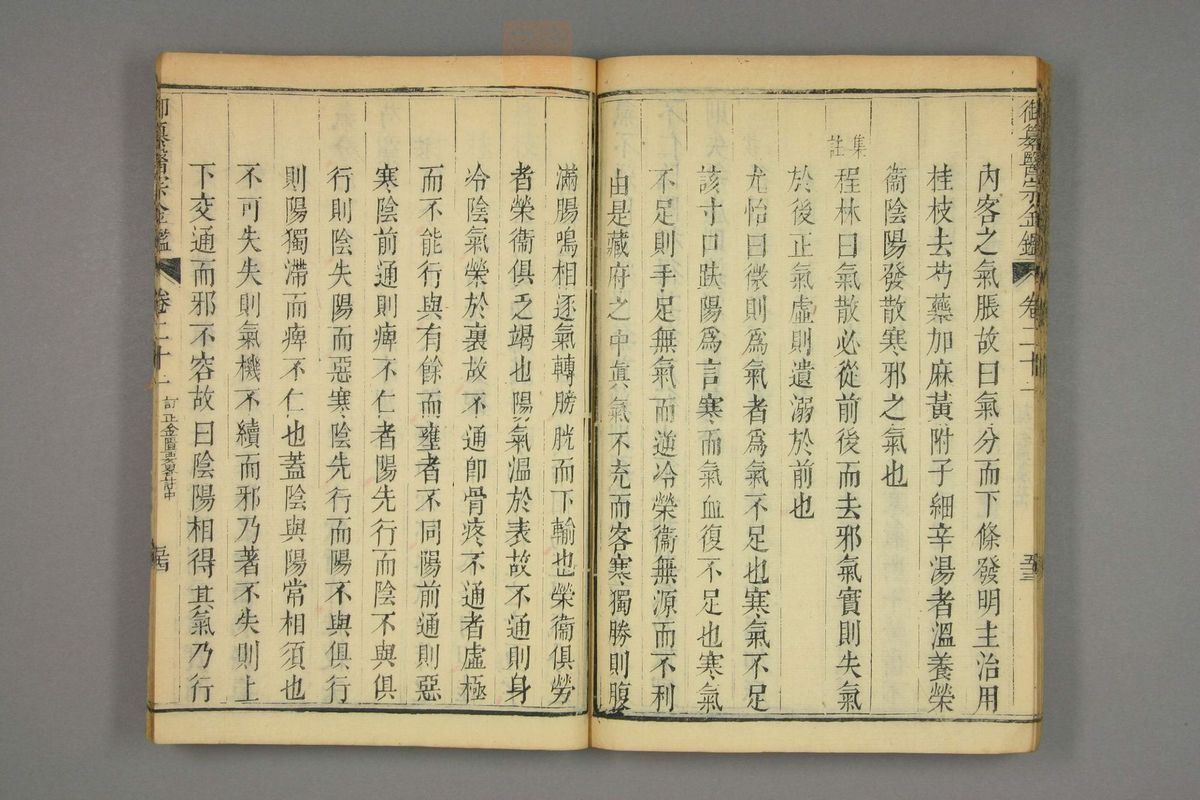 御纂醫宗金鑑 卷二十一 至
內客之氣脹故曰氣分而下條發明主治用
桂枝去芍藥加麻黃附子細辛湯者溫養榮
衞陰陽發散寒邪之氣也
集註
程林曰氣散必從前後而去邪氣實則失氣
於後正氣虛則遺溺於前也
尤怡曰微則爲氣者爲氣不足也寒氣不足
該寸口趺陽爲言寒而氣血復不足也寒氣
不足則手足無氣而逆冷榮衞無源而不利
由是藏府之中眞氣不充而客寒獨勝則腹
滿腸鳴相逐氣轉膀胱而下輸也榮衞俱勞
者榮衞俱乏竭也陽氣溫於表故不通則身
冷陰氣榮於裏故不通卽骨疼不通者虛極
而不能行與有餘而壅者不同陽前通則惡
寒陰前通則痺不仁者陽先行而陰不與俱
行則陰失陽而惡寒陰先行而陽不與俱行
則陽獨滯而痺不仁也蓋陰與陽常相須也
不可失失則氣機不續而邪乃著不失則上
下交通而邪不容故曰陰陽相得其氣乃行
御纂醫宗金鑑 卷二十一 訂正金匱要畧註中